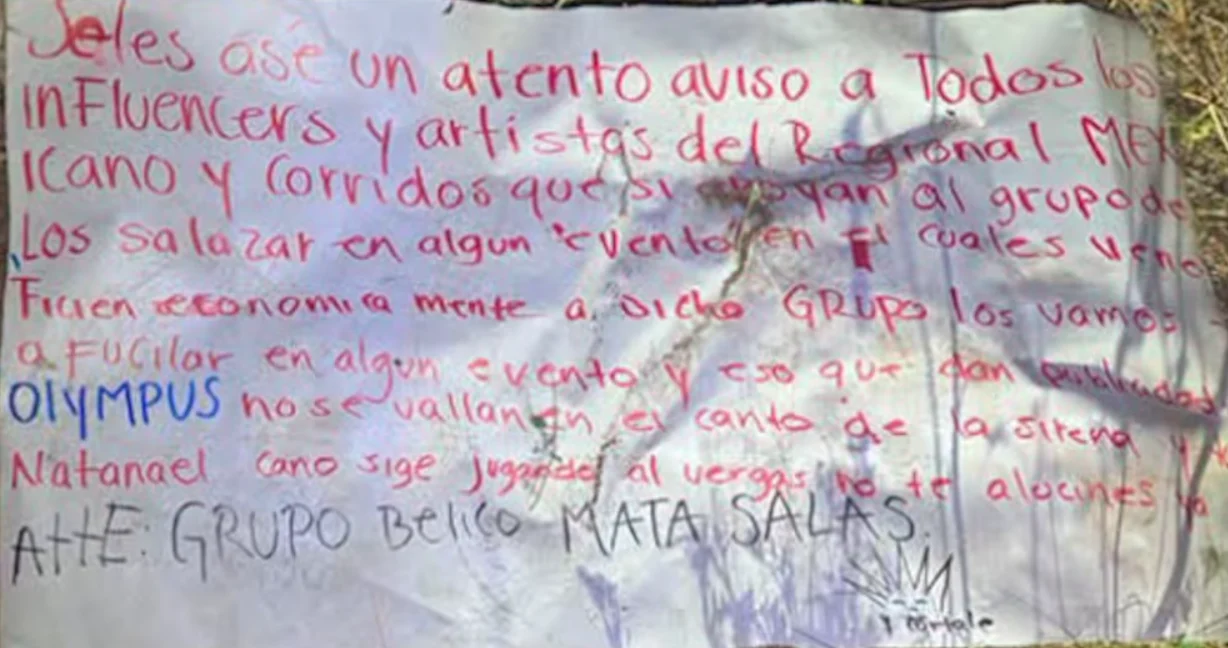 Seles ase un atento aviso a Todos los
inFluencers y artistas del Regional MEX
icano y Corridos que si apoyan al grupo de
Los Salazar en algun evento en el cuales vene
Ficien economica mente a dicho GRUPO los vamos
a FUCilar en algun evento y eso que dan publicidad
OlYMPUS no se vallan en el canto de la sirena y
Natanael cano sige jugando al vergas no te alocines ya
AttE: GRUPO Belico MATA SALAS.